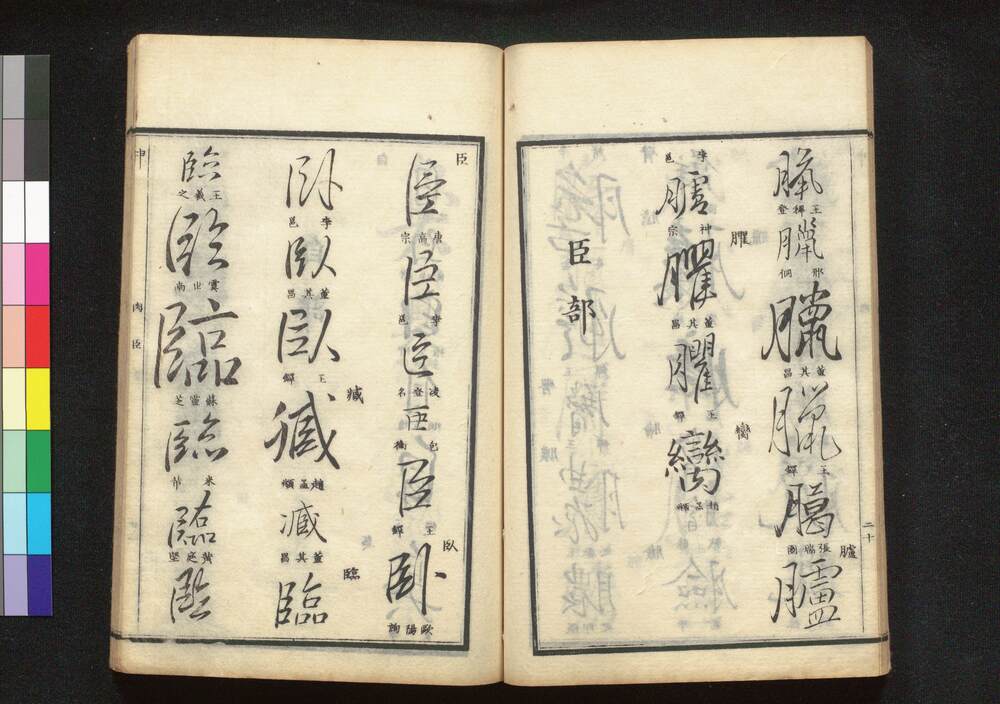 臘 王穉登
臘 邢侗
臘 董其昌
臘 王鐸
臈 張瑞圖
臚
臚
李邕
臚 神宗
臞
臞 董其昌
臞 王鐸
臠
臠 趙孟頫
臣部
二十
臣
臣 唐高宗
臣 李邕
臣 凌登名
臣
臣 王鐸
臥
臥 歐陽詢
臥 李邕
臥 董其昌
臥 王鐸
臧
臧 趙孟頫
臧 董其昌
臨
臨
臨 王羲之
臨 虞世南
臨 蘇靈芝
臨 米芾
臨 黃庭堅
臨
肉臣